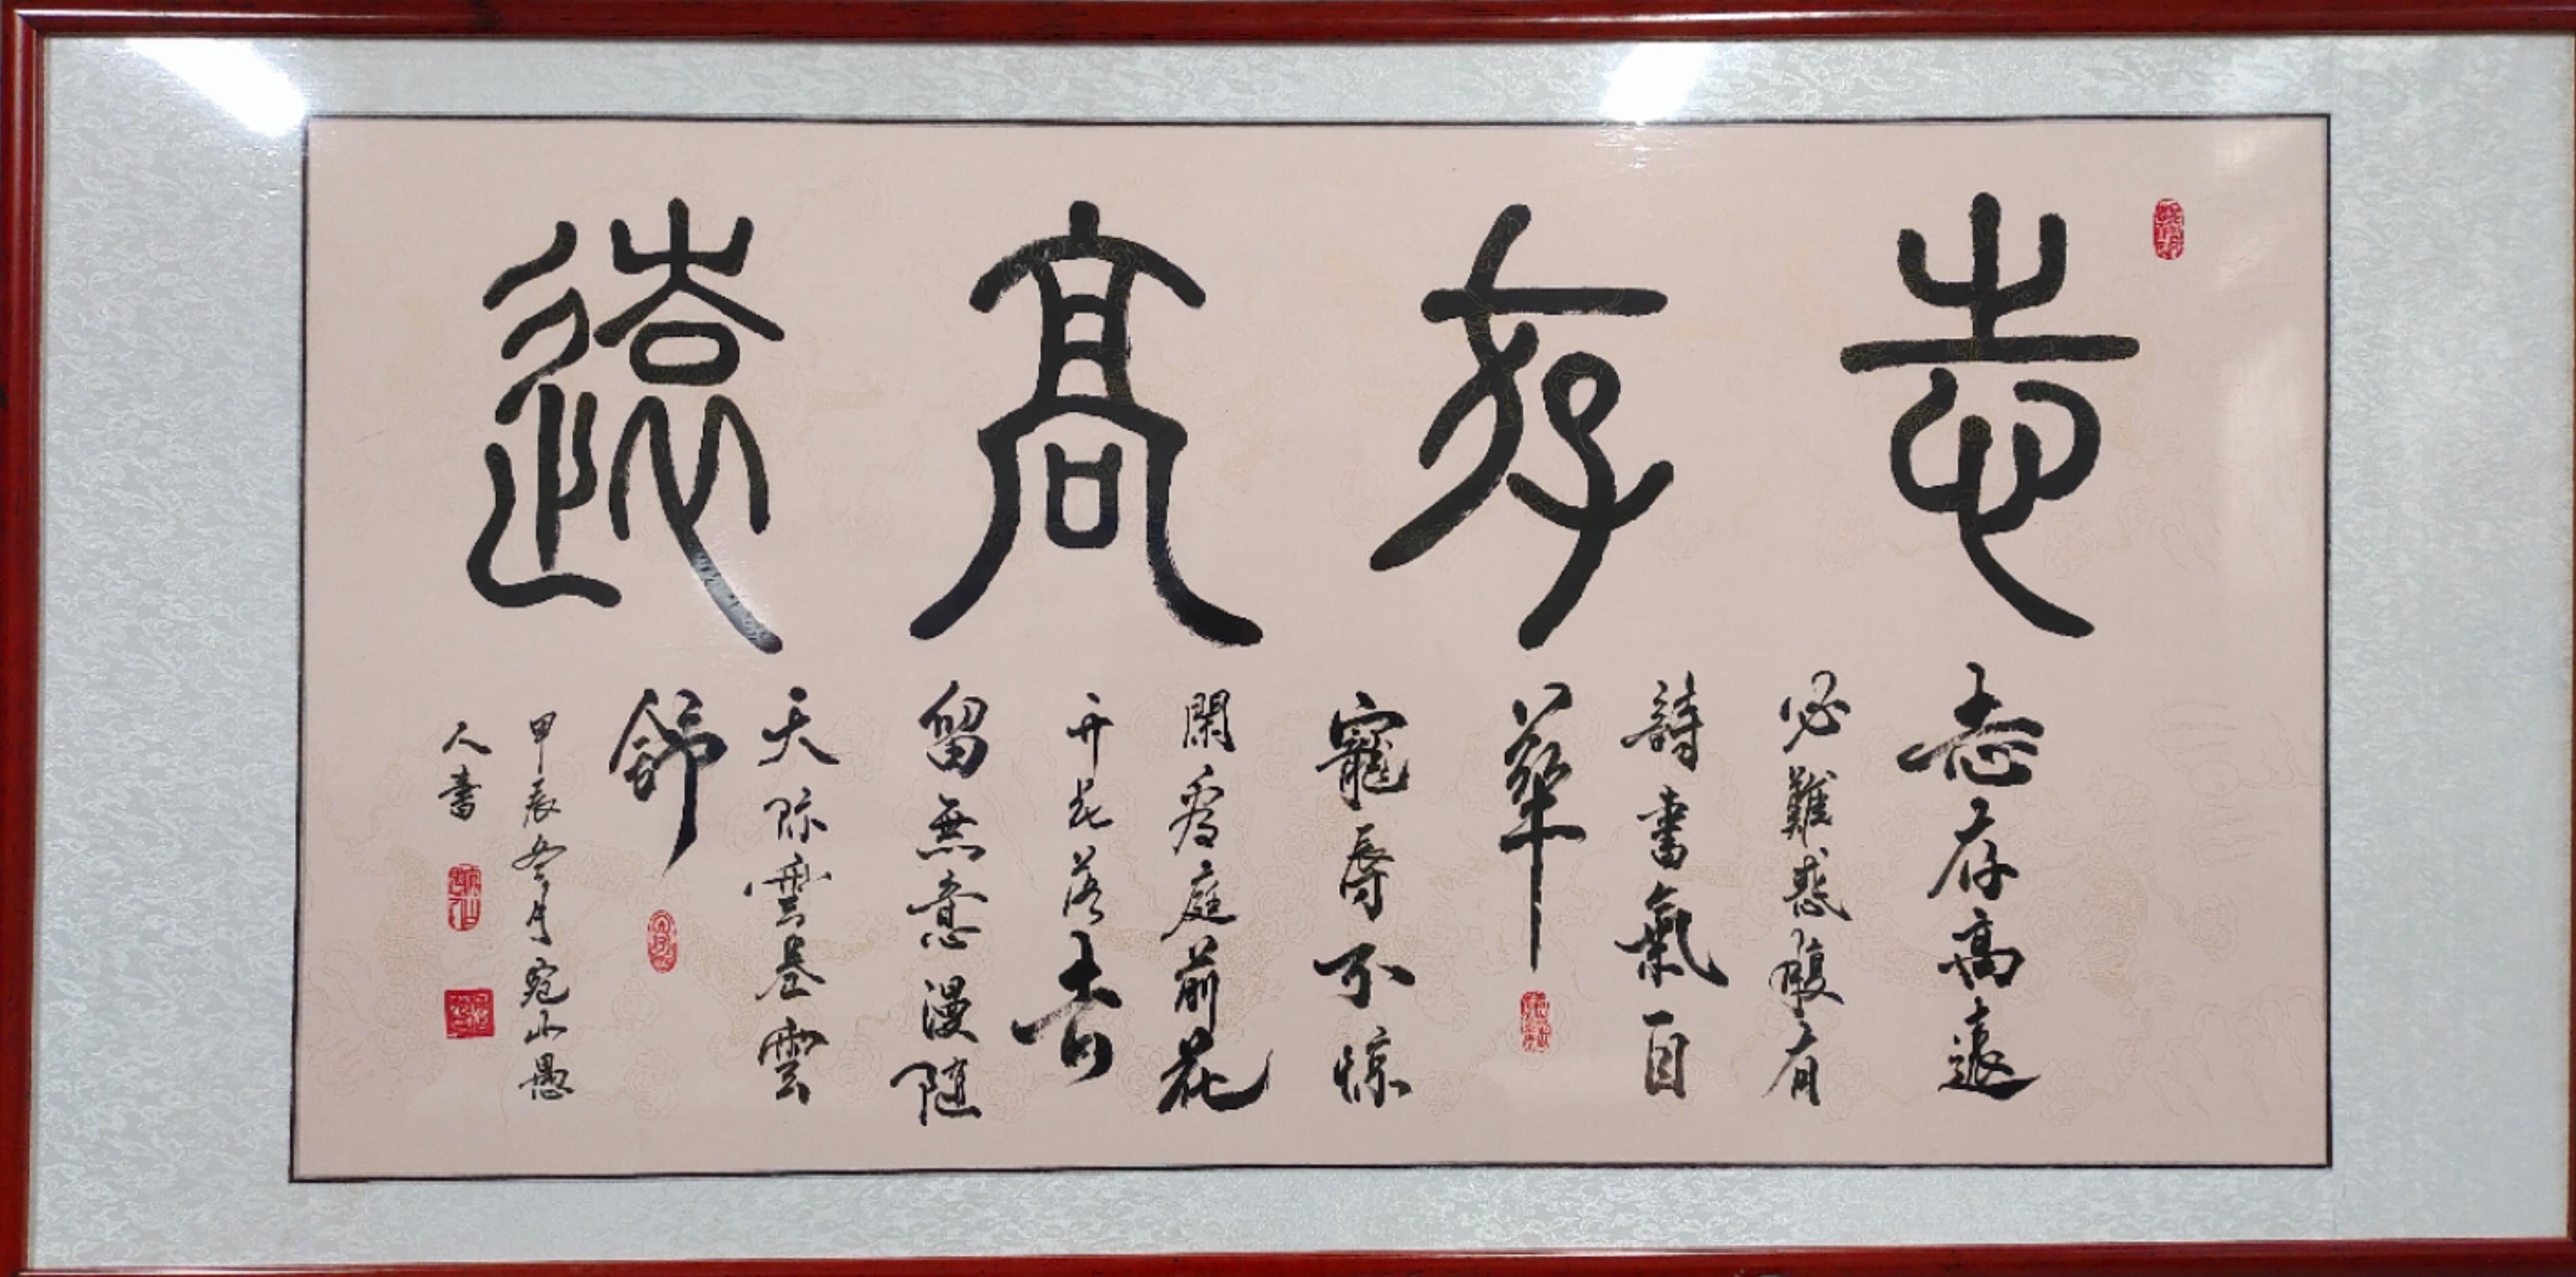 志存高遠
志存高遠
必難惑腹有
詩書氣自
華
寵辱不惊
閑看庭前花
开花落去
留無意漫隨
天际雲卷雲
舒
甲辰冬月宛山愚
人書